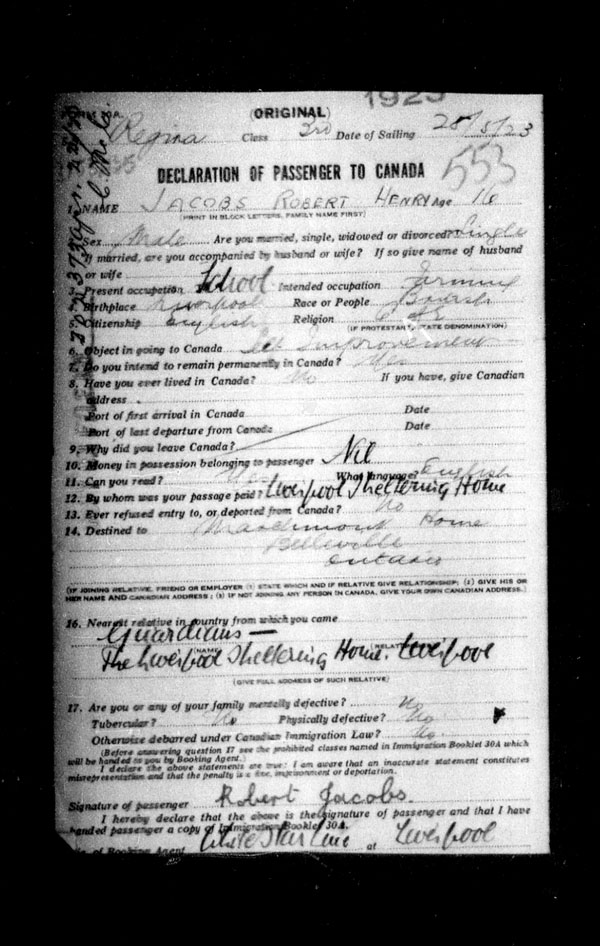 1923
(ORIGINAL)
Regina Class 3rd Date of Sailing 25/5/23
553
DECLARATION OF PASSENGER TO CANADA
1. NAME JACOBS ROBERT HENRY Age 16
(PRINT IN BLOCK LETTERS, FAMILY NAME FIRST)
2. Sex Male Are you married, single, widowed or divorced? Single
If married, are you accompanied by husband or wife? If so give name of husband
or wife
3. Present occupation School Intended occupation Farming
4. Birthplace Liverpool Race or People British
5. Citizenship English Religion C of E
(IF PROTESTANT, STATE DENOMINATION)
6. Object in going to Canada Improvement
7. Do you intend to remain permanently in Canada? Yes
8. Have you ever lived in Canada? No If you have, give Canadian
address
Port of first arrival in Canada Date
Port of last departure from Canada Date
9. Why did you leave Canada?
10. Money in possession belonging to passenger Nil
11. Can you read? Yes What language? English
12. By whom was your passage paid? Liverpool Sheltering Home
13. Ever refused entry to, or deported from Canada? No
14. Destined to Marchmont Home
Belleville
Ontario
(IF JOINING RELATIVE, FRIEND OR EMPLOYER (1) STATE WHICH AND IF RELATIVE GIVE RELATIONSHIP; (2) GIVE HIS OR
HER NAME AND CANADIAN ADDRESS; (3) IF NOT JOINING ANY PERSON IN CANADA, GIVE YOUR OWN CANADIAN ADDRESS.)
16. Nearest relative in country from which you came
Guardians —
The Liverpool Sheltering Home. Liverpool
(NAME)
(GIVE FULL ADDRESS OF SUCH RELATIVE)
17. Are you or any of your family mentally defective? No
Tubercular? No Physically defective? No
Otherwise debarred under Canadian Immigration Law? No
(Before answering question 17 see the prohibited classes named in Immigration Booklet 30A which
will be handed to you by Booking Agent.)
I declare the above statements are true: I am aware that an inaccurate statement constitutes
misrepresentation and that the penalty is a fine, imprisonment or deportation.
Signature of passenger Robert Jacobs.
I hereby declare that the above is the signature of passenger and that I have
handed passenger a copy of Immigration Booklet 30A.
of Booking Agent White Star Line at Liverpool